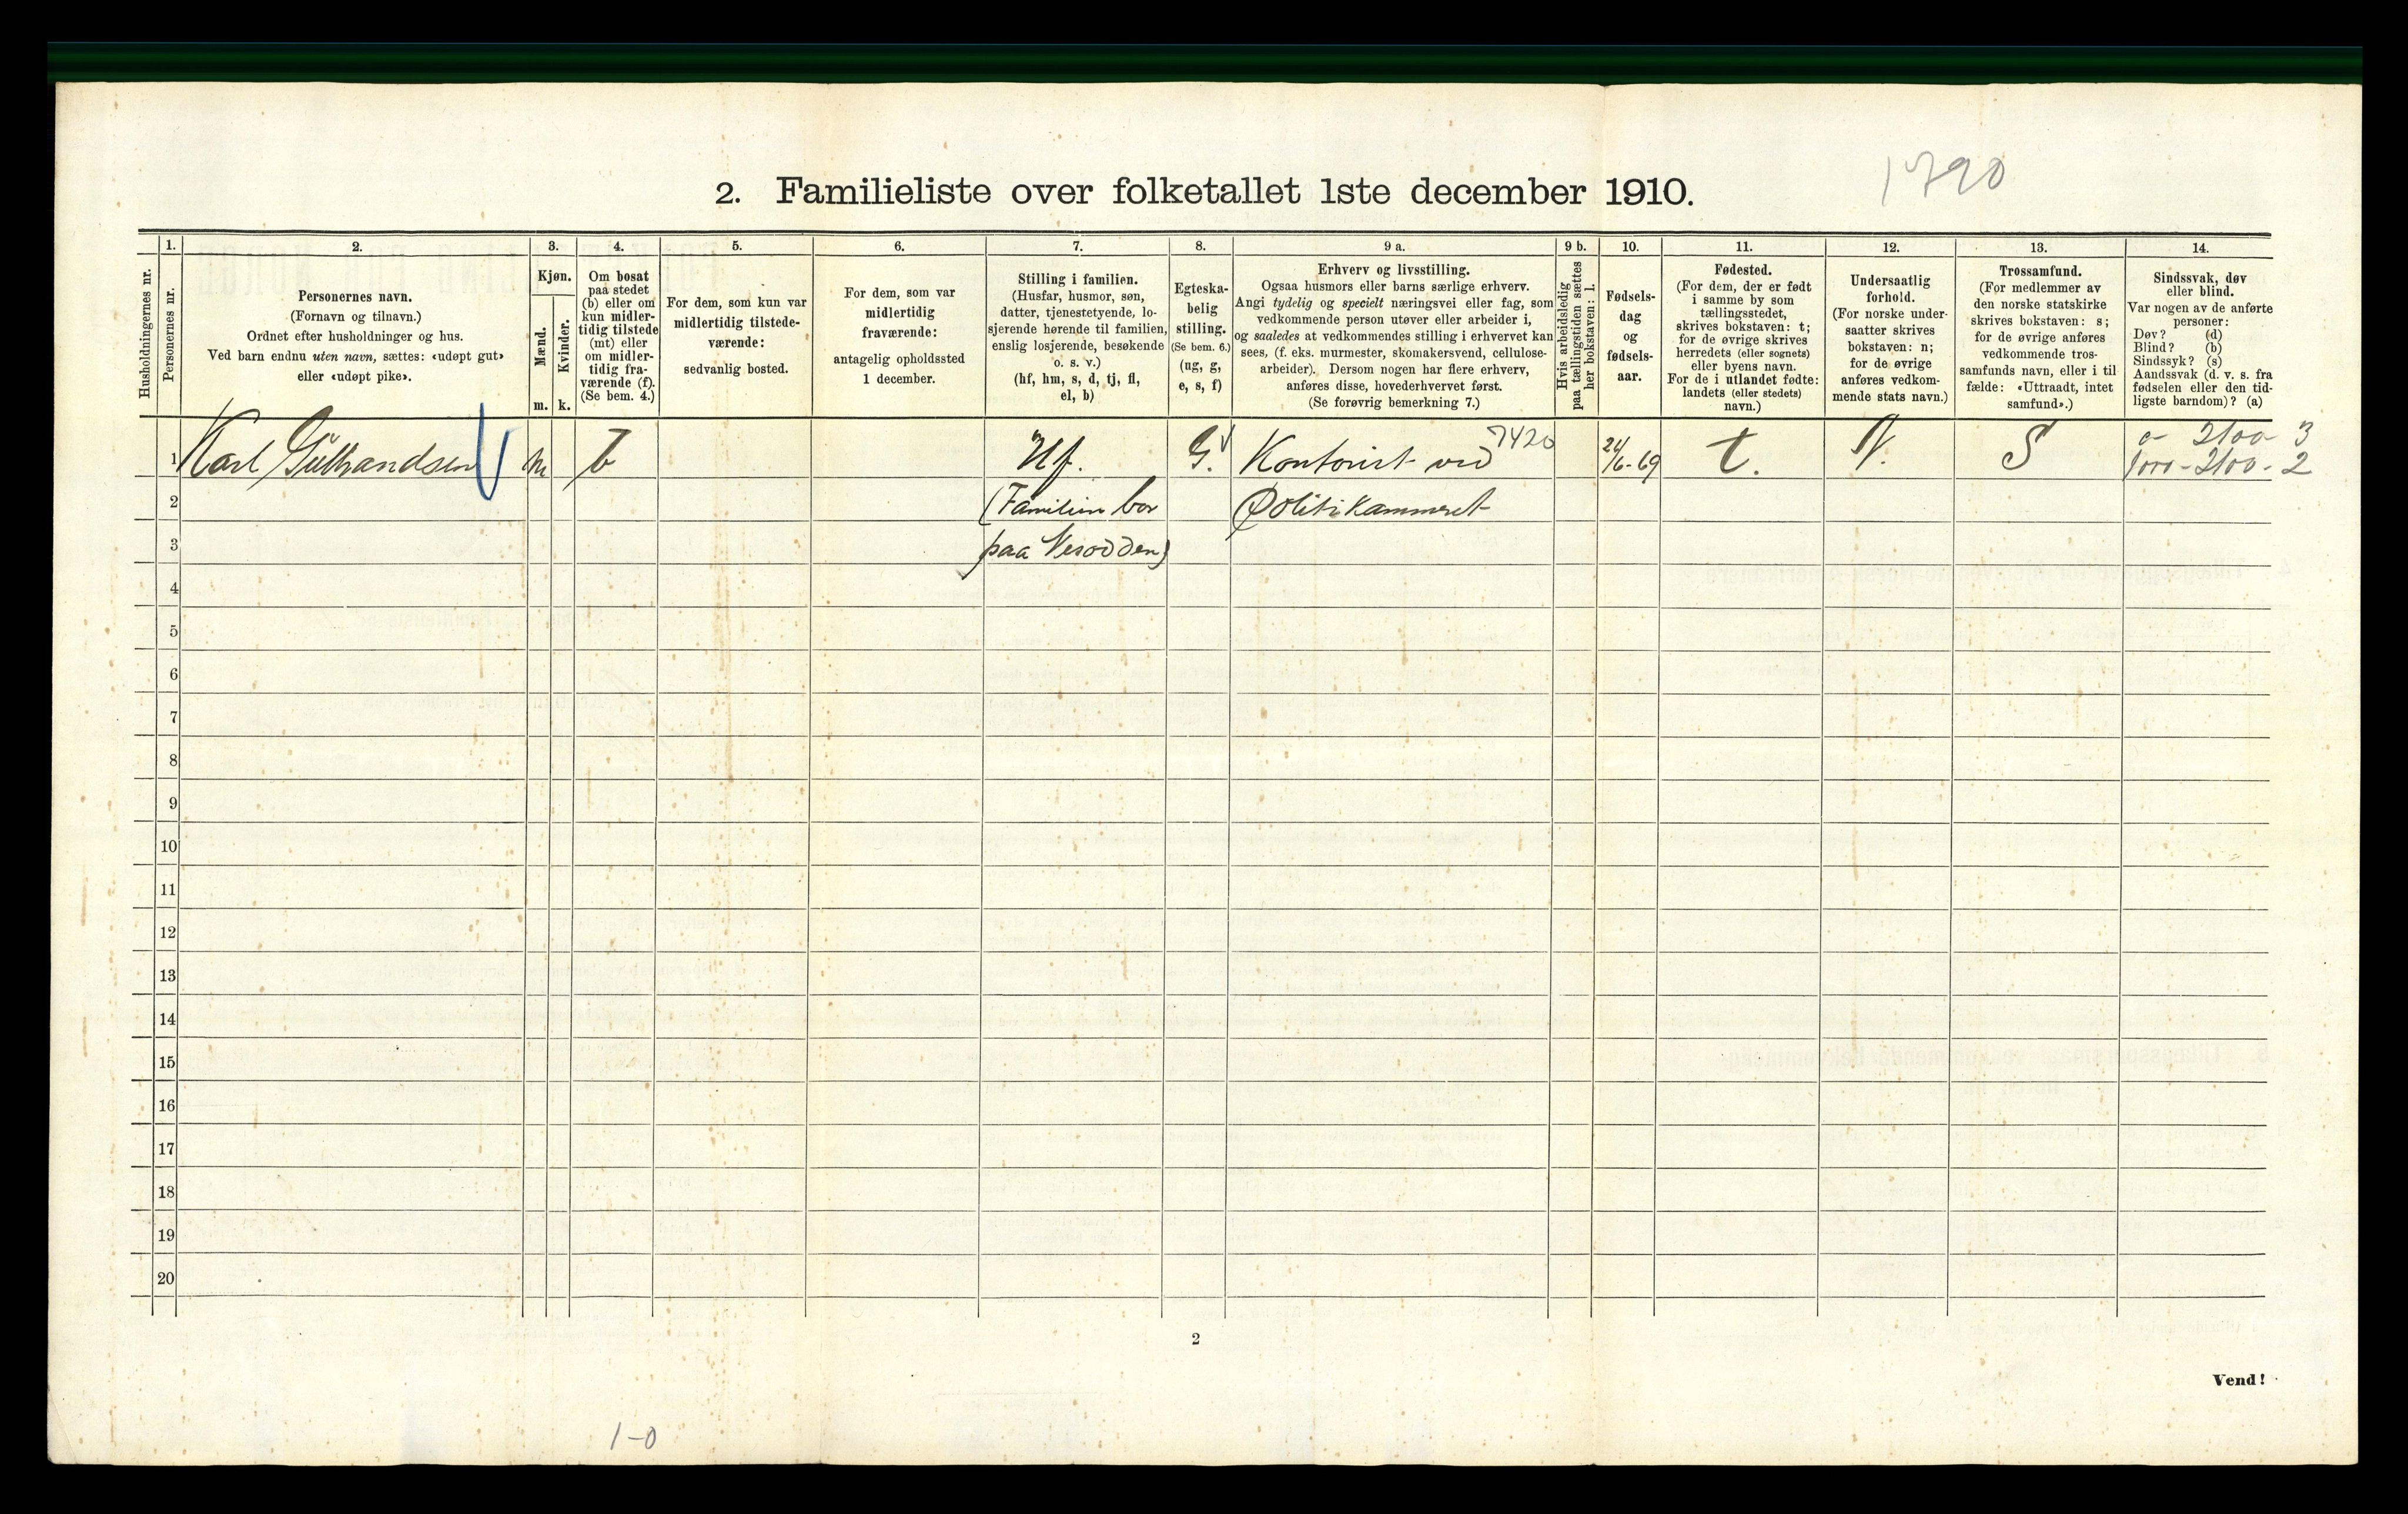 1790
2. Familieliste over folketallet 1ste december 1910.
Husholdningernes nr.
1.
Personernes nr.
2.
Personernes navn.
(Fornavn og tilnavn.)
Ordnet efter husholdninger og hus.
Ved barn endnu uten navn, sættes: «udøpt gut»
eller «udøpt pike».
3.
Kjøn.
Mænd.
Kvinder.
m. k.
4.
Om bosat
paa stedet
(b) eller om
kun midler-
tidig tilstede
(mt) eller
om midler-
tidig fra-
værende (f).
(Se bem. 4.)
5.
For dem, som kun var
midlertidig tilstede-
værende:
sedvanlig bosted.
6.
For dem, som var
midlertidig
fraværende:
antagelig opholdssted
1 december.
7.
Stilling i familien.
(Husfar, husmor, søn,
datter, tjenestetyende, lo-
sjerende hørende til familien,
enslig losjerende, besøkende
o. s. v.)
(hf, hm, s, d, tj, fl,
el, b)
8.
Egteska-
belig
stilling.
(Se bem. 6.)
(ug, g,
e, s, f)
9 a.
Erhverv og livsstilling.
Ogsaa husmors eller barns særlige erhverv.
Angi tydelig og specielt næringsvei eller fag, som
vedkommende person utøver eller arbeider i,
og saaledes at vedkommendes stilling i erhvervet kan
sees, (f. eks. murmester, skomakersvend, cellulose-
arbeider). Dersom nogen har flere erhverv,
anføres disse, hovederhvervet først.
(Se forøvrig bemerkning 7.)
9 b.
Hvis arbeidsledig
paa tællingstiden sættes
her bokstaven: l.
10.
Fødsels-
dag
og
fødsels-
aar.
11.
Fødested.
(For dem, der er født
i samme by som
tællingsstedet,
skrives bokstaven: t;
for de øvrige skrives
herredets (eller sognets)
eller byens navn.
For de i utlandet fødte:
landets (eller stedets)
navn.)
12.
Undersaatlig
forhold.
(For norske under-
saatter skrives
bokstaven: n;
for de øvrige
anføres vedkom-
mende stats navn.)
13.
Trossamfund.
(For medlemmer av
den norske statskirke
skrives bokstaven: s;
for de øvrige anføres
vedkommende tros-
samfunds navn, eller i til
fælde: «Uttraadt, intet
samfund».)
14.
Sindssvak, døv
eller blind.
Var nogen av de anførte
personer:
Døv? (d)
Blind? (b)
Sindssyk? (s)
Aandssvak (d. v. s. fra
fødselen eller den tid-
ligste barndom)? (a)
1 Karl Gulbrandsen m b Hf. G. Kontorist ved 7420 24/6-69 t. N. S 0- 2100- 3
1000-2100-2
2 (Familien bor Politikammeret
3 paa Nesodden)
4
5
6
7
8
9
10
11
12
13
14
15
16
17
18
19
20
2
Vend!
1-0